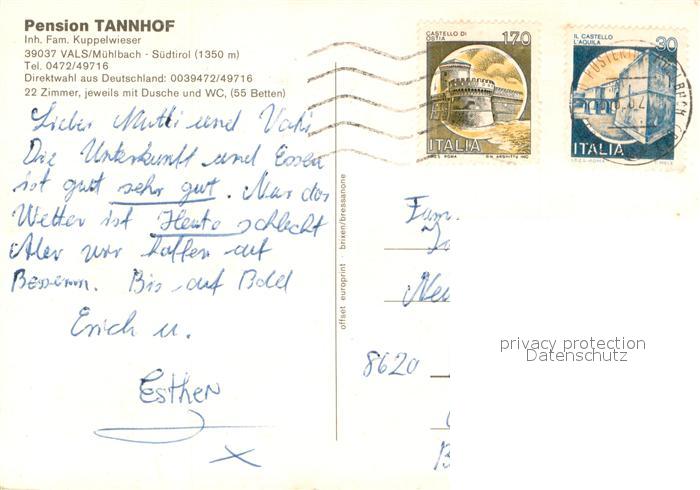 Pension TANNHOF
Inh. Fam. Kuppelwieser
39037 VALS/Mühlbach - Südtirol (1350 m)
Tel. 0472/49716
Direktwahl aus Deutschland: 0039472/49716
22 Zimmer, jeweils mit Dusche und WC, (55 Betten)
Liebe Mutti und Vati
Die Unterkunft und Essen
ist gut sehr gut. Nur das
Wetter ist Heute schlecht
Aber wir hoffen auf
Besseren. Bis auf Bald
Erich u.
Esther
offset europrint · brixen/bressanone
CASTELLO DI OSTIA 170
ITALIA
IL CASTELLO L'AQUILA 30
ITALIA
Fam.
8620
privacy protection
Datenschutz